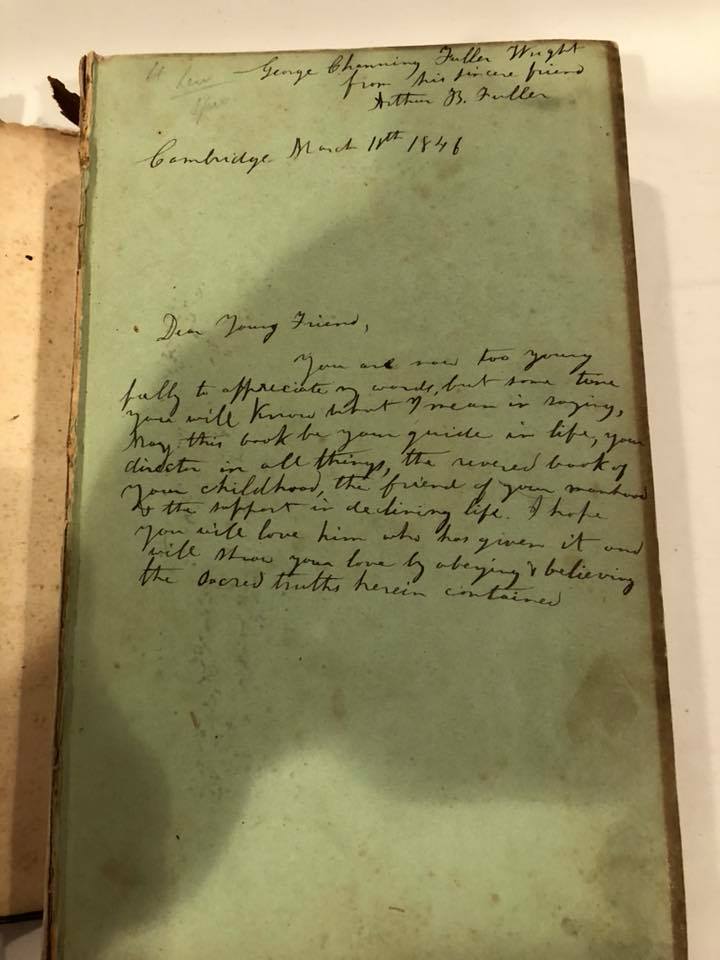 George Channing Fuller Wright
from his sincere friend
Arthur B. Fuller
Cambridge March 11th 1846
Dear Young Friend,
You are now too young
fully to appreciate my words, but some time
you will know what I mean in saying,
May this book be your guide in life, your
director in all things, the revered book of
your childhood, the friend of your manhood
& the support in declining life. I hope
you will love him who has given it and
will show your love by obeying & believing
the sacred truths herein contained